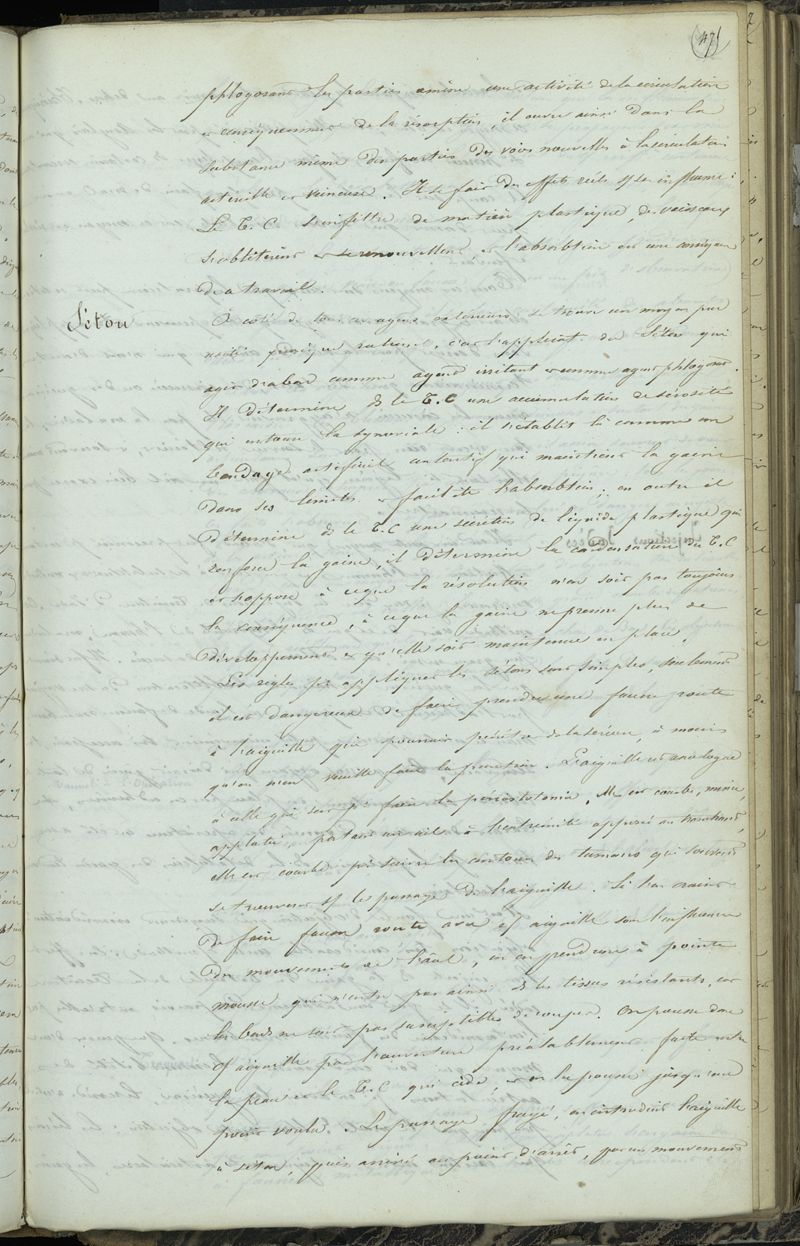 (47)
phlogosant les parties amène une activité de la circulation
et conséquemment de la résorption, il ouvre ainsi dans la
substance même des parties des voies nouvelles à la circulation
artérielle et veineuse. Il se fait des effets réels
Le T. C. s'infiltre de matière plastique, des vaisseaux
s'oblitèrent et se renouvellent, et l'absorbtion est une
de ce travail.
Séton
À côté de tous ces agens extérieurs se trouve un moyen
rationel, c'est l'applicat. du Séton qui
agit d'abord comme agent irritant et comme agent phlogosant.
Il détermine ds le T. C une accumulation de sérosité
qui entoure la synoviale : il s'établit là comme un
bandage artificiel contentif qui maintient la gaine
dans ses limites et facilite l'absorbtion ; en outre il
détermine ds le T. C une secretion de liquide plastique qui
renforce la gaine, il détermine la condensation du T. C
et s'oppose à ce que la résolution n'en soit pas toujours
la conséquence, à ce que la gaine ne prenne plus de
développement et qu'elle soit maintenue en place.
Les règles pr appliquer les sétons sont simples, seulement
il est dangereux de faire prendre une fausse route
à l'aiguille qui pourrait pénétrer de la séreuse, à moins
qu'on n'en veuille faire la ponction. L'aiguille est analogue
à celle qui sert pr faire la périostotomie, elle est courbe, mince,
applatie, portant un œil à l'extrémité opposée au tranchant,
elle est courbe pr suivre les contours des tumeurs qui peuvent
se trouver sr le passage de l'aiguille. Si l'on craint
de faire fausse route avec cette aiguille sous l'influence
des mouvements de l'anl, on en prend une à pointe
mousse qui n'entre pas ainsi ds les tissus résistants, car
les bords ne sont pas susceptibles de couper. On pousse donc
cette aiguille par l'ouverture préalablement faite entre
la peau et le T. C qui cède, et on la pousse jusqu'au
point voulu. Le passage frayé, on introduit l'aiguille
à séton, puis arrivé au point d'arrêt, par un mouvement